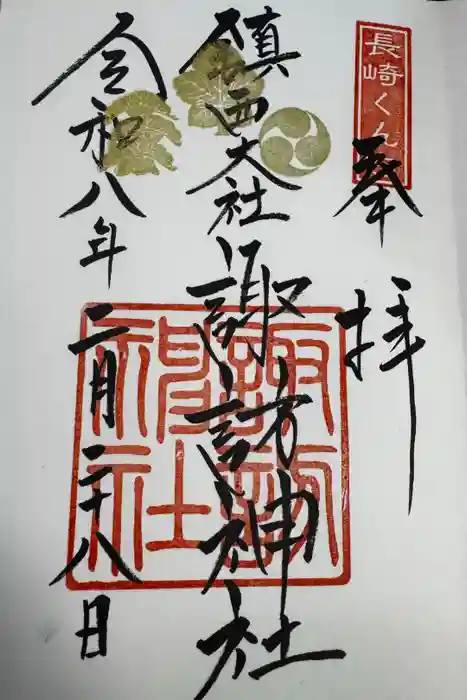 長崎くん
奉拝
鎮西大社諏訪神社
諏訪神社
令和八年二月二十八日